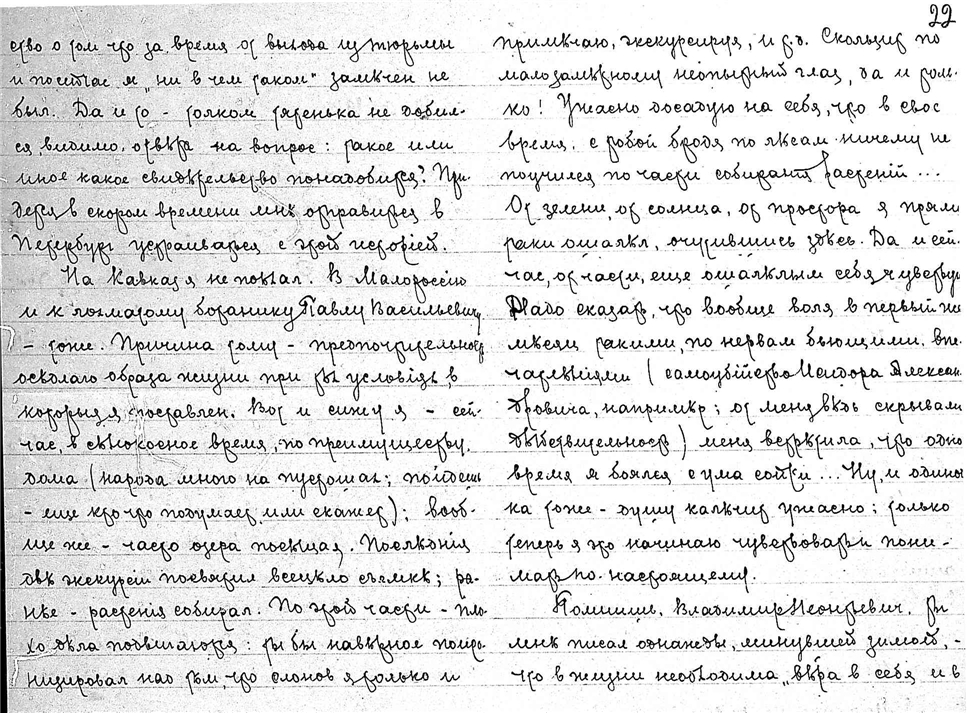 22
ство о том что за время от выхода из тюрьмы
и по сейчас я „ни в чем таком" замѣчен не
был. Да и то - толком тятенька не добил-
ся, видимо, отвѣта на вопрос: такое или
иное какое свидѣтельство понадобится? При-
дется в скором времени мнѣ отправиться в
Петербург устраиваться с этой исторіей.
На Кавказ я не поѣхал. В Малороссію
и к лохматому ботанику Павлу Васильевичу
- тоже. Причина тому - предпочтительность
осѣдлаго образа жизни при тѣх условіях, в
которыя я поставлен. Вот и сижу я - сей-
час, в сѣнокосное время, по преимуществу
дома (народа много на пустошах; пойдешь
- еще кто что подумает или скажет); вооб-
ще же - часто озера посѣщая. Послѣднія
двѣ экскурсіи посвятил всецѣло съемкѣ; ра-
нѣе - растенія собирал. По этой части - пло-
хо дѣла подвигаются: ты бы навѣрное поиро-
низировал над тѣм, что слонов я только и
примѣчаю, экскурсируя, и т.д. Скользит по
малозамѣтному неопытный глаз, да и толь-
ко! Ужасно досадую на себя, что в свое
время, с тобой бродя по лѣсам ничему не
поучился по части собиранія растеній...
От зелени, от солнца, от простора я прям
таки ошалѣл, очутившись здѣсь. Да и сей-
час, отчасти, еще ошалѣлым себя чувствую
Надо сказать, что вообще воля в первый же
мѣсяц такими, по нервам бьющими, впе-
чатлѣніями (самоубійство Нестора Алексан-
дровича, например; от меня вѣдь скрывали
дѣйствительность) меня встрѣтила, что одно
время я боялся с ума сойти... Ну, и одиноч
ка тоже - душу калѣчит ужасно; только
теперь я это начинаю чувствовать и пони-
мать по-настоящему.
Помнишь, Владимир Леонтьевич, ты
мнѣ писал однажды, минувшей зимой, -
что в жизни необходима „вѣра в себя и в